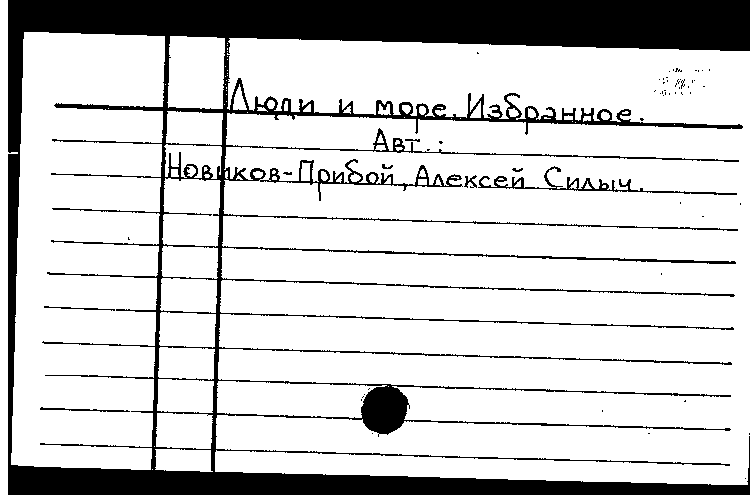 Люди и море. Избранное.
Авт.:
Новиков-Прибой, Алексей Силыч.